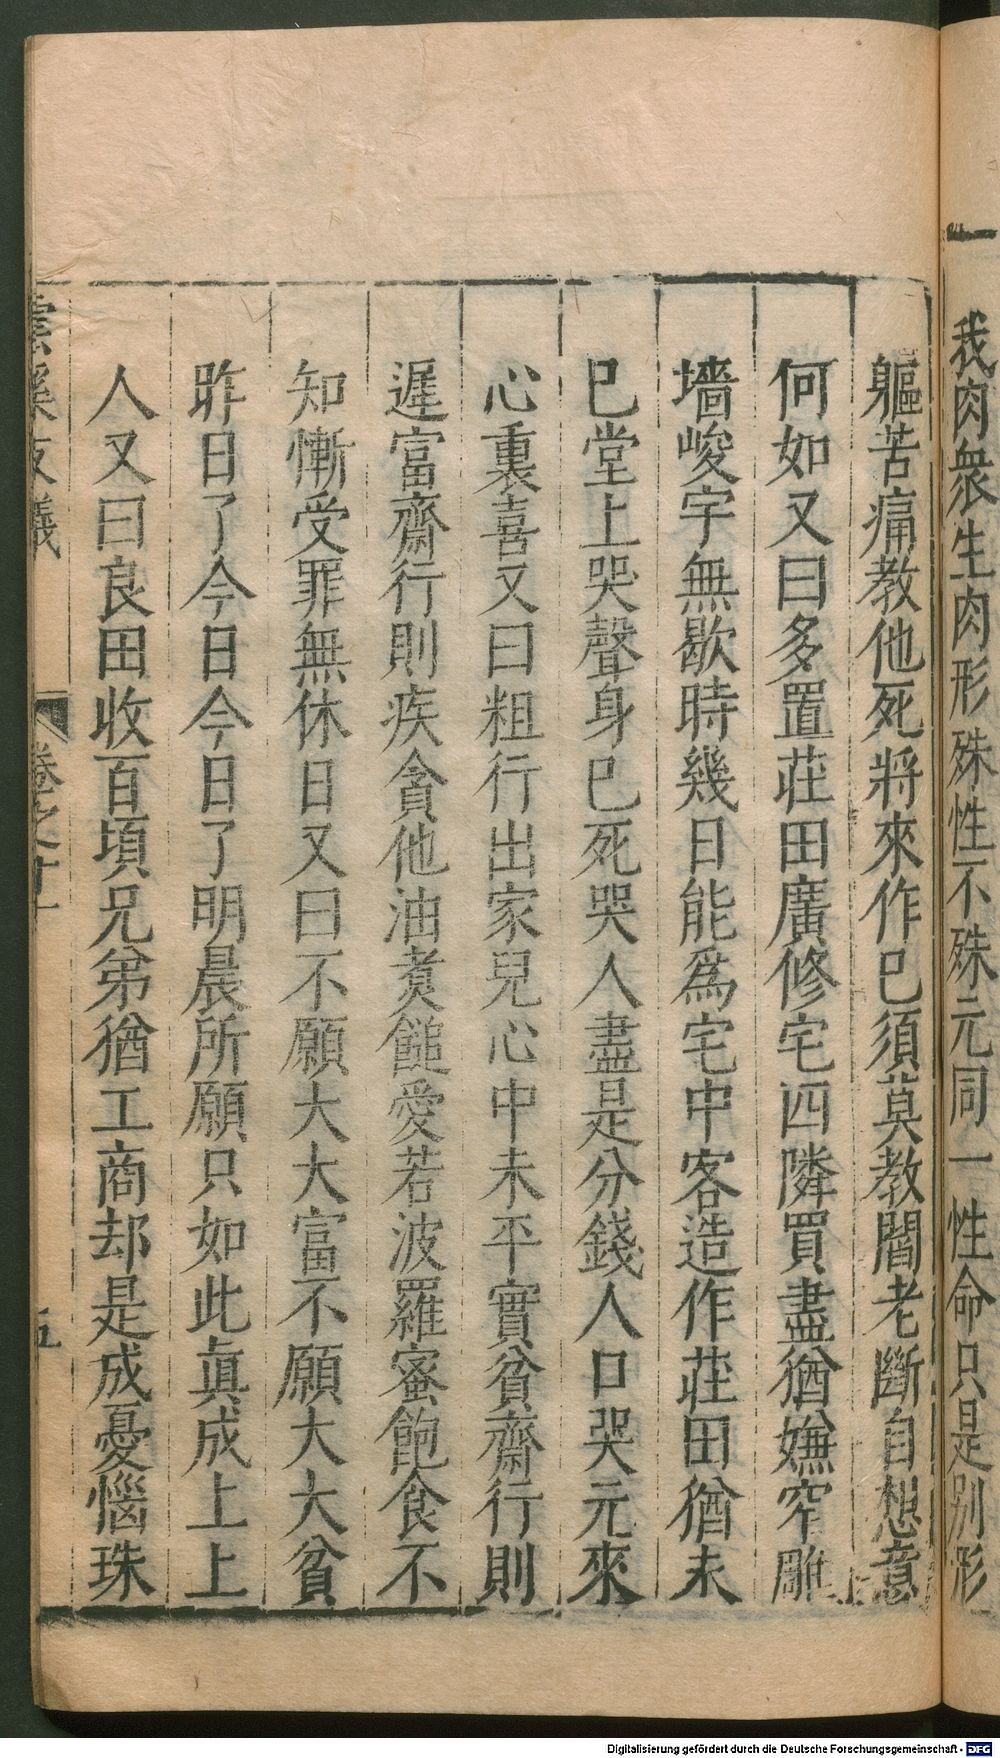 我肉衆生肉形殊性不殊元同一性命只是别形
軀苦痛教他死將來作已須莫教閻老斷自想意
何如又曰多置莊田廣修宅四隣買盡猶嫌窄雕
墻峻宇無歇時幾日能爲宅中客造作莊田猶未
已堂上哭聲身已死哭人盡是分錢人口哭元來
心裏喜又曰粗行出家兒心中未平實貧齋行則
遲富齋行則疾貪他油煑䭔愛若波羅蜜飽食不
知慚受罪無休日又曰不願大大富不願大大貧
昨日了今日今日了明晨所願只如此眞成上上
人又曰良田收百頃兄弟猶工商却是成憂惱珠
雲溪友議 卷之十一 五
Digitalisierung gefördert durch die Deutsche Forschungsgemeinschaft - DFG